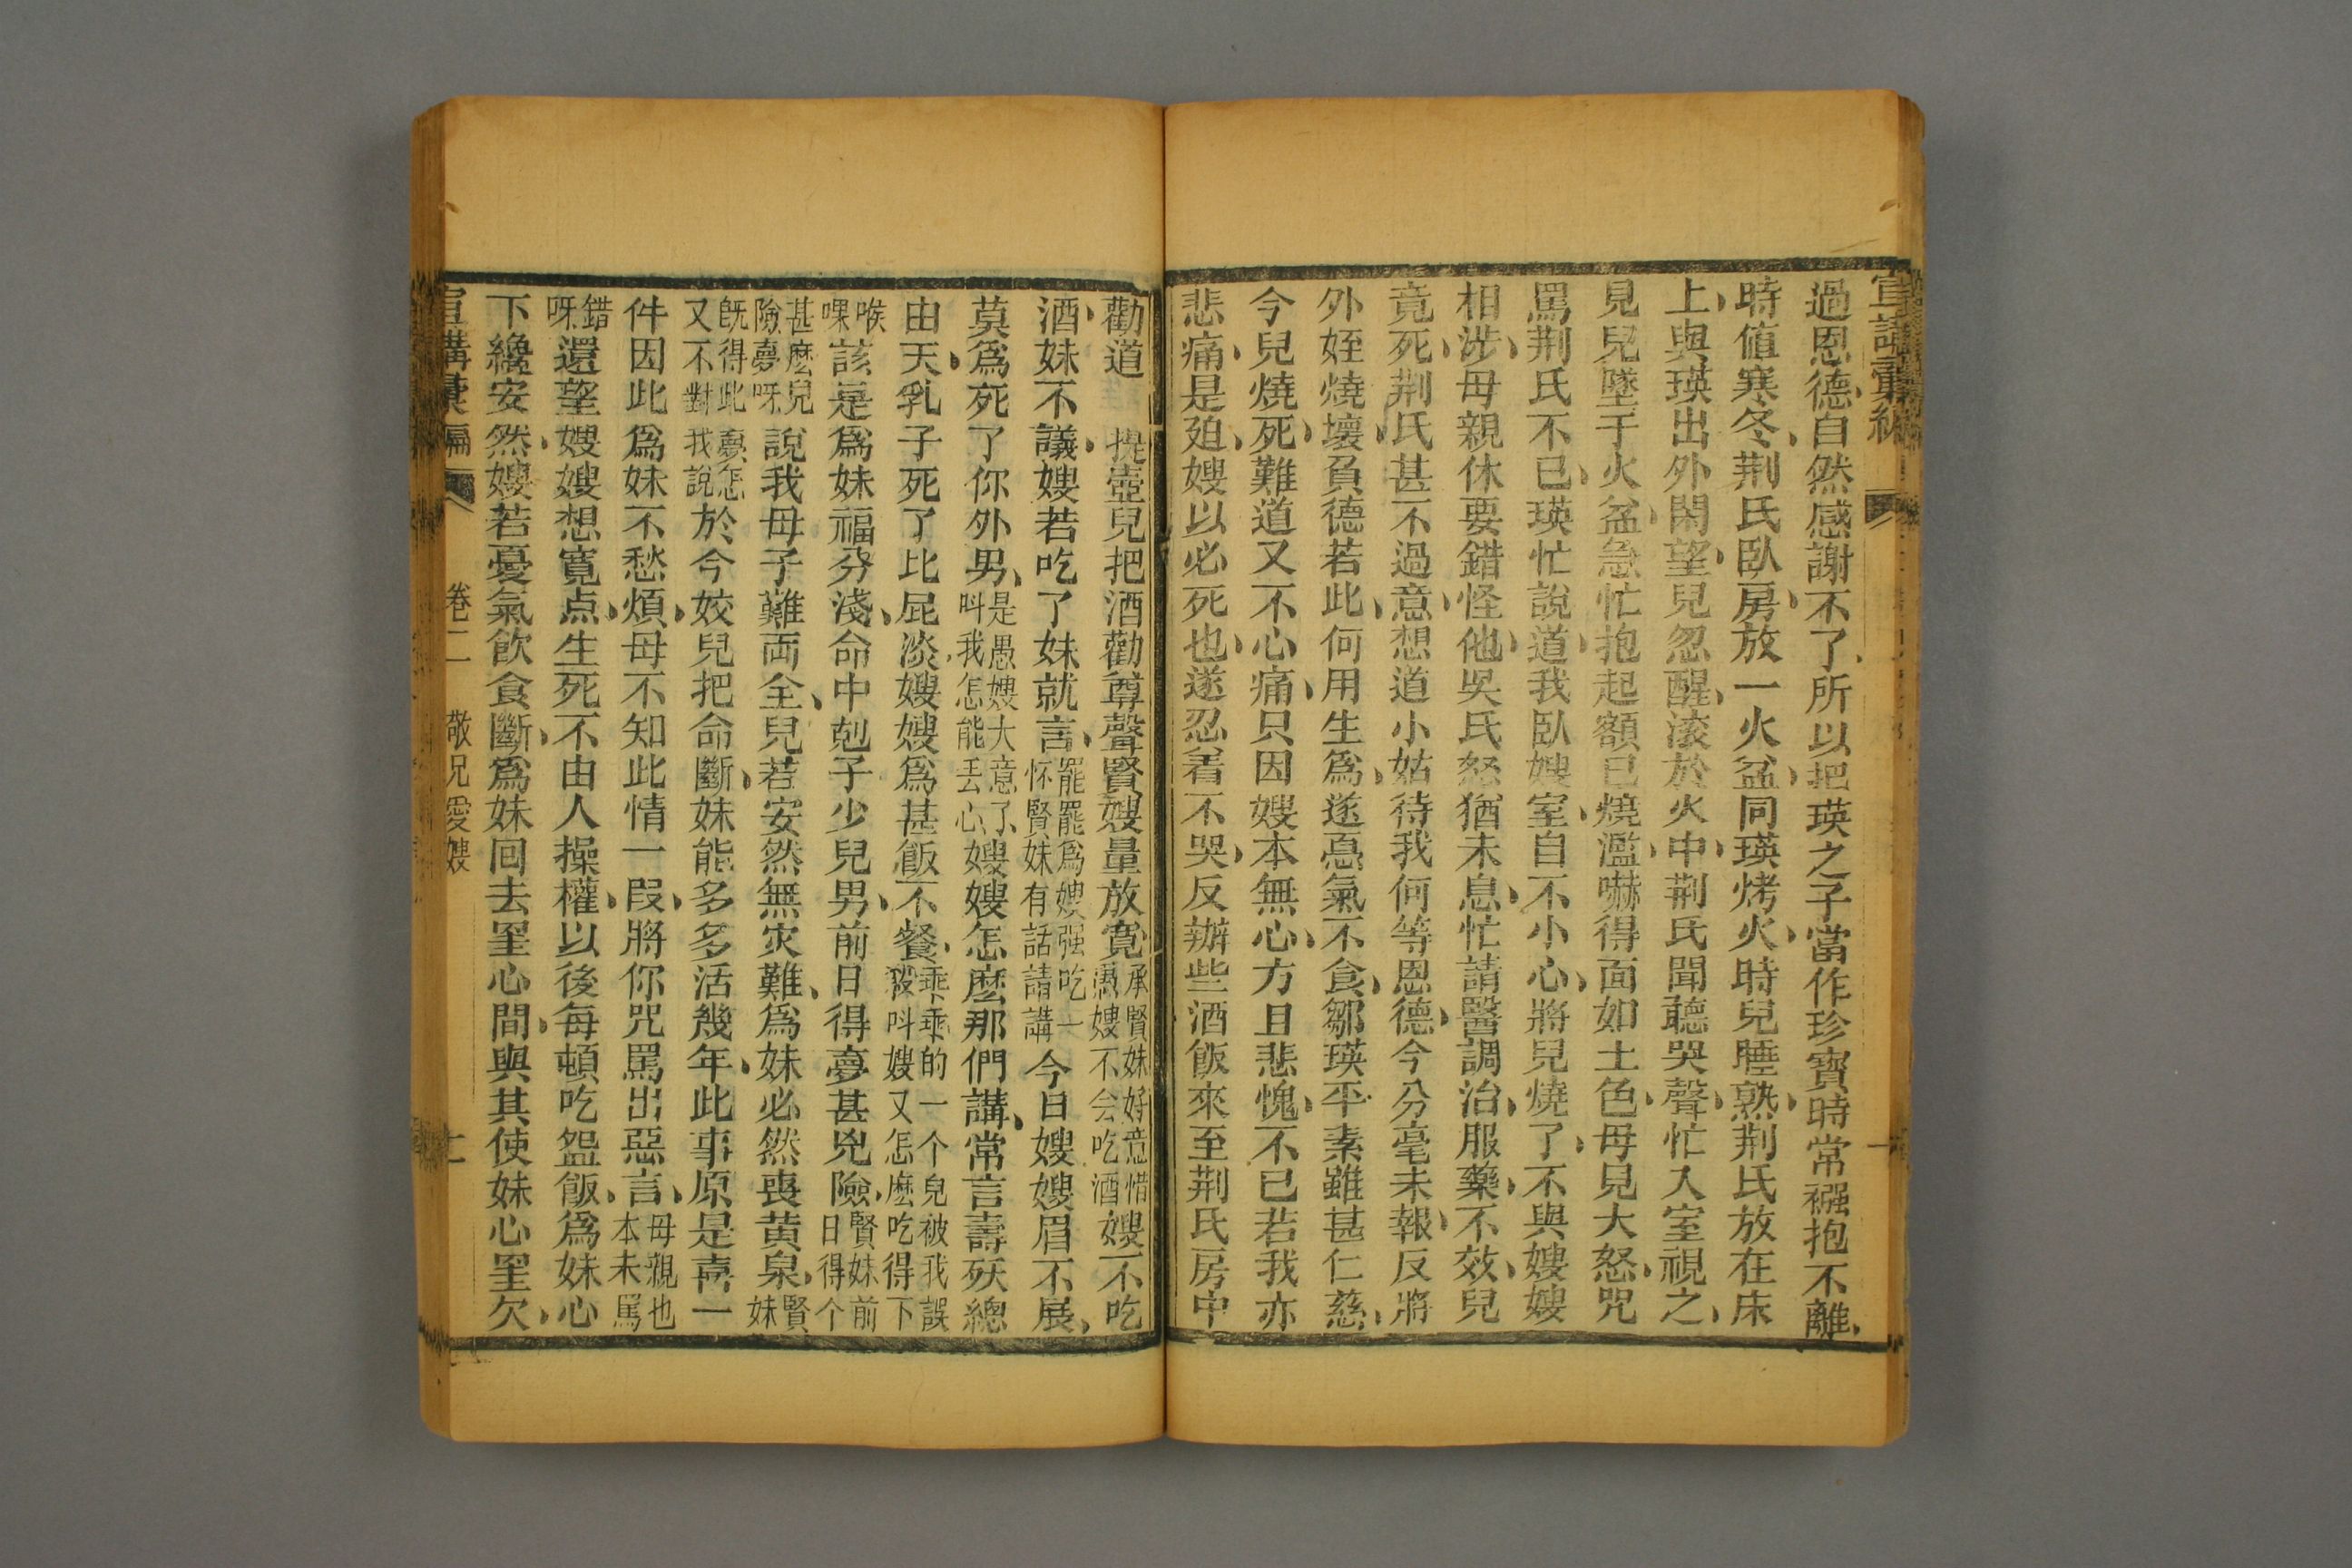 宣講彙編
過恩德自然感謝不了所以把瑛之子當作珍寶時常襁抱不離
時值寒冬荆氏臥房放一火盆同瑛烤火時兒睡熟荆氏放在床
上與瑛出外閑望兒忽醒滚於火中荆氏聞聽哭聲忙入室視之
見兒墜于火盆急忙抱起額已燒濫嚇得面如土色母見大怒咒
罵荆氏不已瑛忙說道我臥嫂室自不小心將兒燒了不與嫂嫂
相涉母親休要錯怪他吳氏怒猶未息忙請醫調治服藥不效兒
竟死荆氏甚不過意想道小姑待我何等恩德今分毫未報反將
外姪燒壞負德若此何用生爲遂慪氣不食鄒瑛平素雖甚仁慈
今兒燒死難道又不心痛只因嫂本無心方且悲愧不已若我亦
悲痛是廹嫂以必死也遂忍着不哭反辦些酒飯來至荆氏房中
勸道 提壺兒把酒勸尊聲賢嫂量放寬承賢妹好意惜愚嫂不会吃酒嫂不吃
酒妹不議嫂若吃了妹就言罷罷爲嫂强吃一怀賢妹有話請講今日嫂嫂眉不展
莫爲死了你外男是愚嫂大意了叫我怎能丢心嫂嫂怎麽那們講常言壽殀總
由天乳子死了比屁淡嫂嫂爲甚飯不餐乖乖的一个兒被我誤殺叫嫂又怎麽吃得下
喉㗖該是爲妹福分淺命中尅子少兒男前日得夢甚兇險賢妹前日得个
甚麽兒險夢呀說我母子難両全兒若安然無灾難爲妹必然喪黄泉賢妹
旣得此夢怎又不對我說於今姣兒把命斷妹能多多活幾年此事原是喜一
件因此爲妹不愁煩母不知此情一叚將你咒罵出惡言母親也本未罵
錯呀還望嫂嫂想寬点生死不由人操權以後每頓吃盌飯爲妹心
下纔安然嫂若憂氣飲食斷爲妹囘去罣心間與其使妹心罣欠
宣講彙編 卷二 敬兄愛嫂